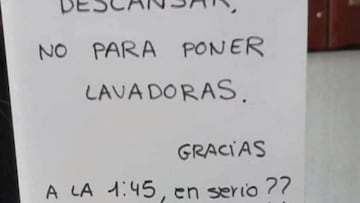 DESCANSAR.
NO PARA PONER
LAVADORAS.
GRACIAS
A LA 1:45, en serio??